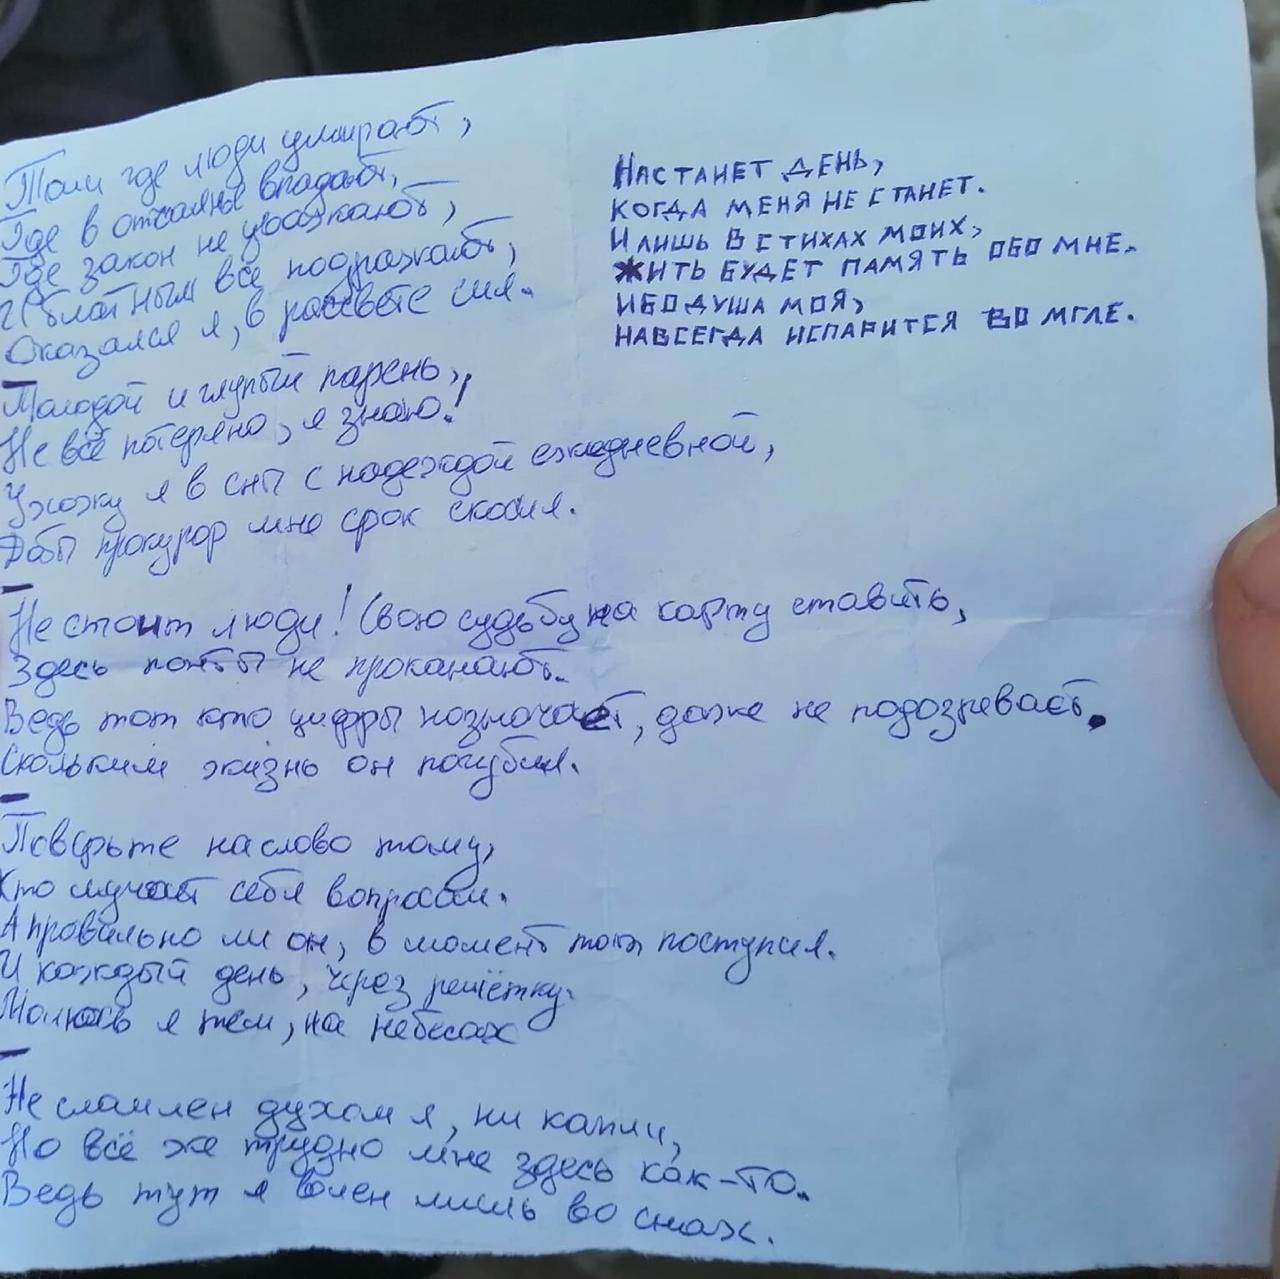 Там где люди умирают,
Где в отчаянье впадают,
Где закон не уважают,
И блатным все подражают,
Оказался я, в рассвете сил.
Молодой и глупый парень,
Не всё потеряно, я знаю!
Ухожу я в сны с надеждой ежедневной,
Дабы прокурор мне срок скосил.
Не стоит люди! Свою судьбу на карту ставить,
Здесь понты не проканают.
Ведь тот кто цифры назначает, даже не подозревает.
Скольким жизнь он погубил.
Поверьте на слово тому,
Кто мучает себя вопросом.
А правильно ли он, в момент тот поступил.
И каждый день, через решётку.
Молюсь я тем, на небесах
Не сламлен духом я, ни капли,
Но всё же трудно мне здесь как-то.
Ведь тут я волен лишь во снах.
НАСТАНЕТ ДЕНЬ,
КОГДА МЕНЯ НЕ СТАНЕТ.
И ЛИШЬ В СТИХАХ МОИХ,
ЖИТЬ БУДЕТ ПАМЯТЬ ОБО МНЕ.
ИБО ДУША МОЯ,
НАВСЕГДА ИСПАРИТСЯ ВО МГЛЕ.